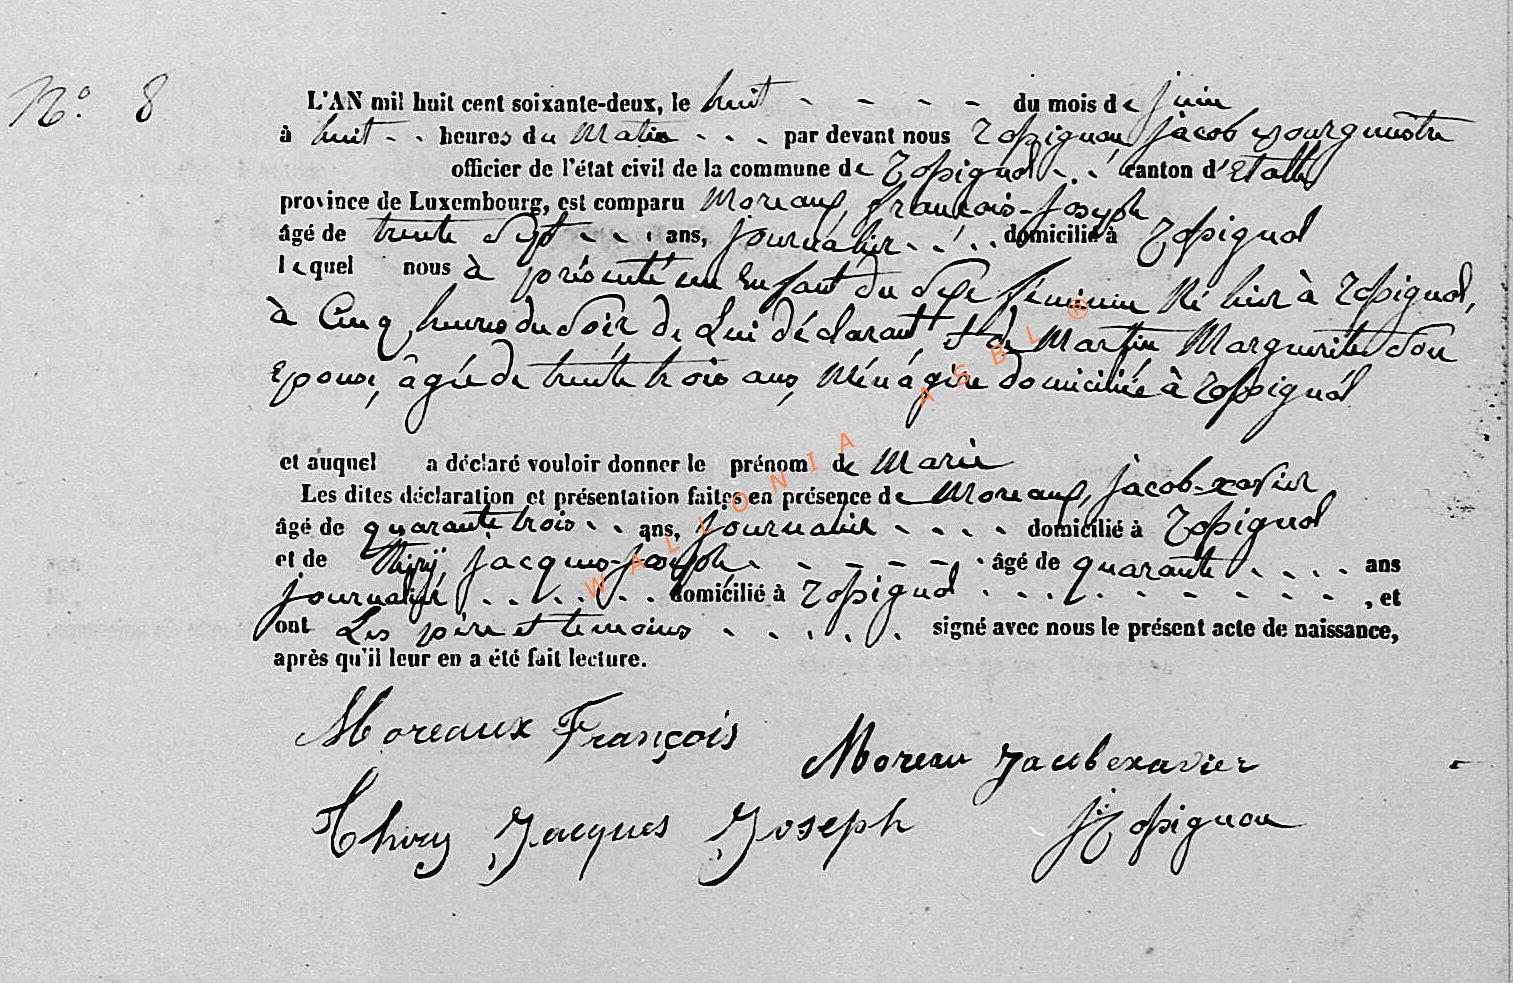 N.° 8
L'AN mil huit cent soixante-deux, le huit - - - - du mois de juin
à huit - - heures du Matin - - - par devant nous Rossignon jacob bourgmestre
officier de l'état civil de la commune de Rossignol - - - canton d'Etalle
province de Luxembourg, est comparu Moreaux, françois-joseph
âgé de trente sept - - - ans, journalier - - - domicilié à Rossignol
lequel nous à présenté un Enfant du Sexe féminin Né hier à Rossignol,
à Cinq heures du Soir, de Lui déclarant et de Martin Marguerite Son
Epouse, âgée de trente trois ans, Ménagère domiciliée à Rossignol
et auquel a déclaré vouloir donner le prénom de Marie
Les dites déclaration et présentation faites en présence de Moreaux, jacob-xavier
âgé de quarante trois - - ans, journalier - - - - domicilié à Rossignol
et de Thiry jacques-joseph - - - - - - - âgé de quarante - - - - ans
journalier - - - - - - domicilié à Rossignol - - - - - - - - - - , et
ont Les père et temoins - - - - - signé avec nous le présent acte de naissance,
après qu'il leur en a été fait lecture.
Moreaux François
Moreau Jacobexavier
Thiry Jacques Joseph
J Rossignon
WALLONIA ASBL ®